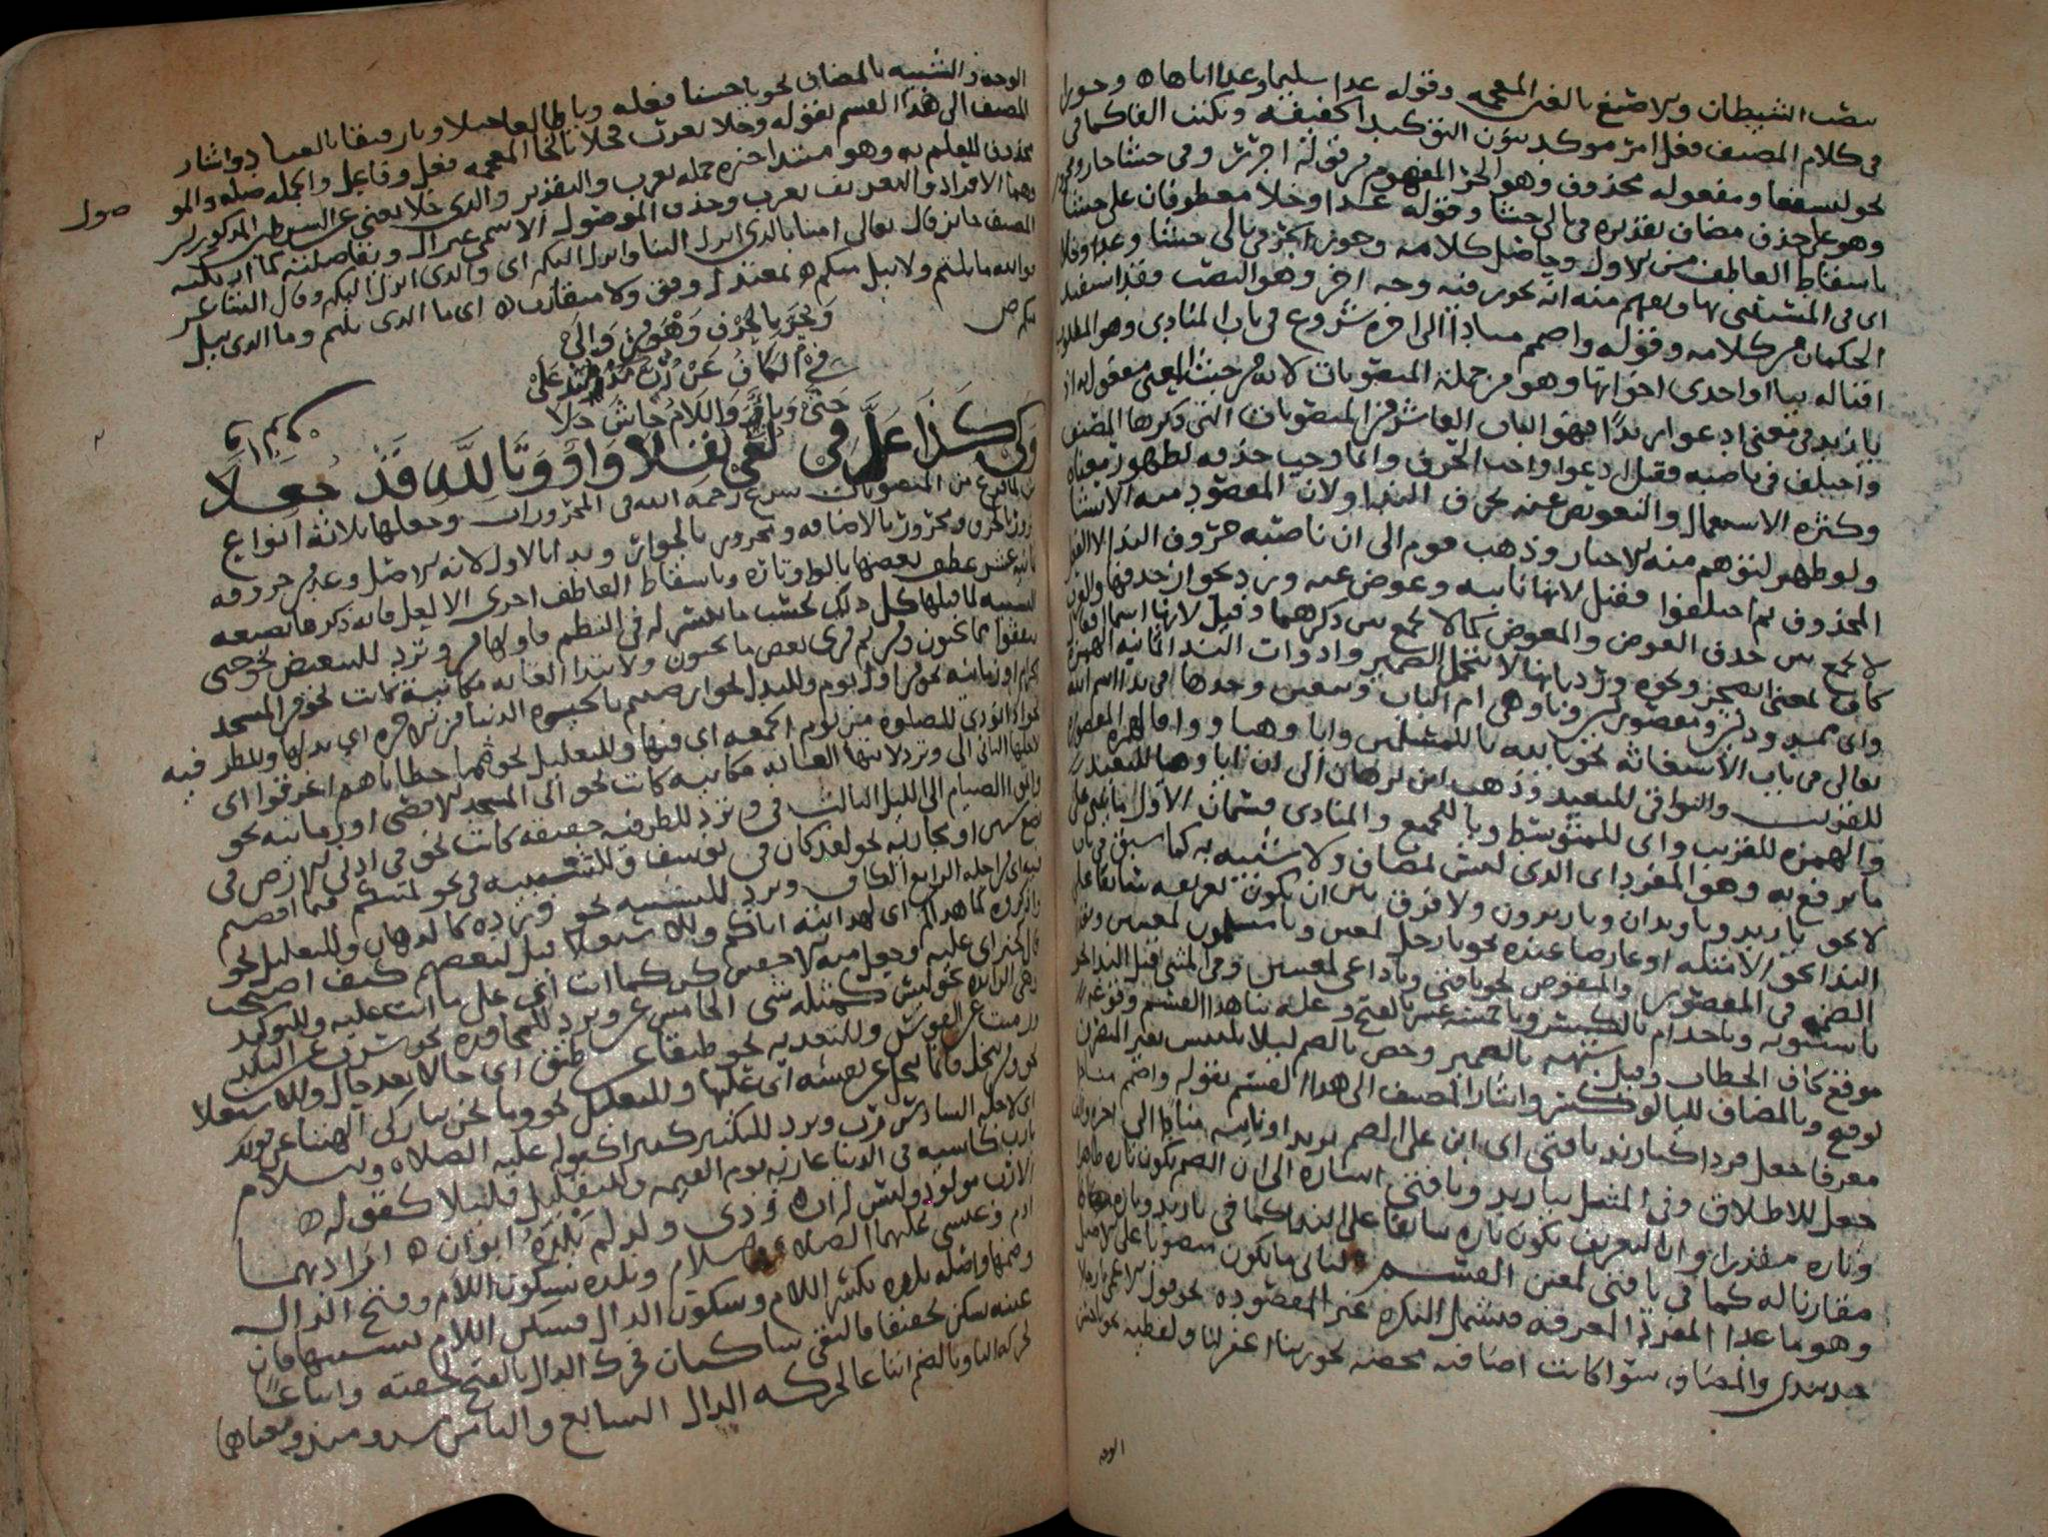 بنصب الشيطان والاصبغ بالغين المعجمة وقوله عدا سليما وعدا اباها ه وجوزا
في كلام المصنف فعل امر موكد بنون التوكيد الخفيفة وتكتب الفا كما في
نحو لنسفعا ومفعوله محذوف وهو الجر المفهوم من قوله اجرر وفي حشا جار ومجرور
وهو على حذف مضاف تقديره في تالي حشا وقوله عدا وخلا معطوفان على حشا
باسقاط العاطف من الاول وحاصل كلامه وجوز الجر في تالي حشا وعدا وخلا
اي في المستثنى بها ويفهم منه انه يجوز فيه وجه اخر وهو النصب فقد استفيد
الحكمان من كلامه وقوله واضمم منادا الى اخره شروع في باب المنادى وهو المطلوب
اقباله بيا او احدى اخواتها وهو من جملة المنصوبات لانه من حيث المعنى مفعول به اذ
يا زيد في معنى ادعو زيدا فهو الباب العاشر من المنصوبات التي ذكرها المصنف
واختلف في ناصبه فقيل ادعوا واجب الحذف وانما وجب حذفه لظهور معناه
وكثرة الاستعمال والتعويض عنه بحرف النداء ولان المقصود منه الانشا
ولو ظهر لتوهم منه الاخبار وذهب قوم الى ان ناصبه حروف النداء لا الفعل
المحذوف ثم اختلفوا فقيل لانها نايبه وعوض عنه ورد بجواز حذفها والعرب
لا تجمع بين حذف العوض والمعوض كما لا تجمع بين ذكرهما وقيل لانها اسما افعال
كاف بمعنى اتضجر ونحوه ورد بانها لا تتحمل الضمير وادوات الندا ثمانيه الهمزة
واي ممدودتين ومقصورتين ويا وهي ام الباب وتتعين وحدها في ندا اسم الله
تعالى في باب الاستغاثه نحو يا لله يا للمسلمين وايا وهيا ووا فالهمزة المقصورة
للقريب والبواقي للبعيد وذهب ابن برهان الى ان ايا وهيا للبعيد
والهمزه للقريب واي للمتوسط ويا للجميع والمنادى قسمان الاول ما يبنى على
ما يرفع به وهو المفرد اي الذي ليس بمضاف ولا شبيه به كما سبق في باب
لا نحو يا زيد ويا زيدان ويا زيدون ولا فرق بين ان يكون تعريفه سابقا على
الندا نحو الامثلة او عارضا عنده نحو يا رجل لمعين ويا مسلمون لمعينين وتقدر
الضمه في المقصور والمنقوص نحو يا فتى ويا داعي لمعينين وفي المبني قبل الندا نحو
يا سيبويه ويا حذام بالكسر ويا خمسة عشر بالفتح وعلة بنا هذا القسم وقوعه
موقع كاف الخطاب وقيل شبهه بالضمير وخص بالضم ليلا يلتبس بغير المنصرف
لو فتح وبالمضاف للياء لو كسر واشار المصنف الى هذا القسم بقوله واضمم مناد
معرفا جعل مردا كيا زيد يا فتى اي ابن على الضم
جعل للاطلاق وفي المثيل بيا زيد ويا فتى اشاره الى ان الضم يكون تاره ظاهرا
وتاره مقدرا وان التعريف يكون تاره سابقا على الندا كما في يا زيد وتاره
مقارنا له كما في يا فتى لمعين القسم الثاني ما يكون منصوبا على الاصل
وهو ما عدا المفرد المعرفه فيشمل النكره غير المقصوده نحو قول الاعمى يا رجلا
خذ بيدي والمضاف سوا كانت اضافته محضه نحو ربنا اغفر لنا ولفظيه نحو يا حسن
الوجه
الوجه والشبيه بالمضاف نحو يا حسنا فعله ويا طالعا جبلا ويا رفيقا بالعباد واشار
المصنف الى هذا القسم بقوله وخلا يعرف
محذوف للعلم به وهو مبتدا خبره جمله يعرب والتقدير والذي خلا يعني عن الشرطين المذكورين
وهما الافراد والتعريف يعرب وحذف الموصول الاسمي غير ال
صول
المصنف جايز قال تعالى امنا بالذي انزل الينا وانزل اليكم اي والذي انزل اليكم وقال الشاعر
فوالله ما نلتم ولا نيل منكم ه بمعتدل وفق ولا متقارب ه اي ما الذي نلتم وما الذي نيل
منكم ص
وَيُجَرُّ بِالحَرْف وَهْوَ مِنْ وَالَى
فِي الكَافُ عَنْ رُبَّ مُذ مُنْذُ عَلَى
حَتَّى وَبَاءٌ وَاللَامُ حَاشَ خلا
وَكَي كَذَا عَلَّ في لغي نقلا وَاوٌ وَتَا لِلَّهِ قَدْ جُعِلَا
لما فرغ من المنصوبات شرع رحمه الله في المجرورات وجعلها ثلاثة انواع
مجرور بالحرف ومجرور بالاضافه ومجرور بالجوار وبدا بالاول لانه الاصل وعد من حروفه
ثمانيه عشر عطف بعضها بالواو تاره وباسقاط العاطف اخرى الا لعل فانه ذكرها بصيغه
التشبيه لما قبلها كل ذلك بحسب ما تيسر له في النظم فاولها من وترد للتبعيض نحو حتى
تنفقوا مما تحبون ومن ثم قرئ بعض ما تحبون ولابتدا الغايه مكانية كانت نحو من المسجد
الحرام او زمانيه نحو من اول يوم وللبدل نحو ارضيتم بالحيوة الدنيا من الاخره اي بدلها وللظرفيه
نحو اذا نودي للصلوة من يوم الجمعه اي فيها وللتعليل نحو مما خطاياهم اغرقوا اي
لاجلها الثاني الى وترد لانتها الغايه مكانيه كانت نحو الى المسجد الاقصى او زمانيه نحو
واتموا الصيام الى الليل الثالث في وترد للظرفيه حقيقه كانت نحو في ادنى الارض في
بضع سنين او مجازيه نحو لقد كان في يوسف وللسببيه نحو لمسكم فيما افضتم
فيه اي لاجله الرابع الكاف وترد للتشبيه نحو ورده كالدهان وللتعليل نحو
واذكروه كما هداكم اي لهدايته اياكم وللاستعلا قيل لبعضهم كيف اصبحت
قال كخير اي عليه وجعل منه الاخفش كن كما انت اي على ما انت عليه وللتوكيد
وهي الزايده نحو ليس كمثله شي الخامس عن وترد للمجاوزه نحو سرت عن البلد
ورميت عن القوس وللبعديه نحو طبقا عن طبق اي حالا بعد حال وللاستعلا
نحو ومن يبخل فانما يبخل عن نفسه اي عليها وللتعليل نحو وما نحن بتاركي الهتنا عن قولك
اي لاجله السادس رب وترد للتكثير كثيرا كقوله عليه الصلاة والسلام
يا رب كاسيه في الدنيا عاريه يوم القيمه وللتقليل قليلا كقوله ه
الا رب مولود وليس له اب ه وذي ولد لم يَلْدَهُ ابوان ه اراد بهما
ادم وعيسى عليهما الصلاة والسلام ويلده بسكون اللام وفتح الدال
وضمها واصله يلده بكسر اللام وسكون الدال فسكن اللام تشبيها
عينه تسكن تخفيفا فالتقى ساكنان فحرك الدال بالفتح لخفته واتباعا
لحركة اليا وبالضم اتباعا لحركه الدال السابع والثامن مذ ومنذ ومعناهما